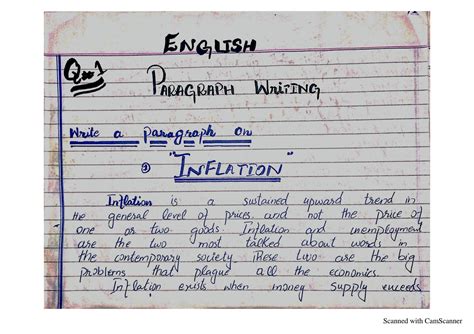 ENGLISH
Q#1
PARAGRAPH WRITING
Write a paragraph on
"INFLATION"
Inflation is a sustained upward trend in
the general level of prices and not the price of
one or two goods Inflation and unemployment
are the two most talked about words in
the contemporary society. These two are the big
problems that plague all the economics.
Inflation exists when money supply exceeds
Scanned with CamScanner